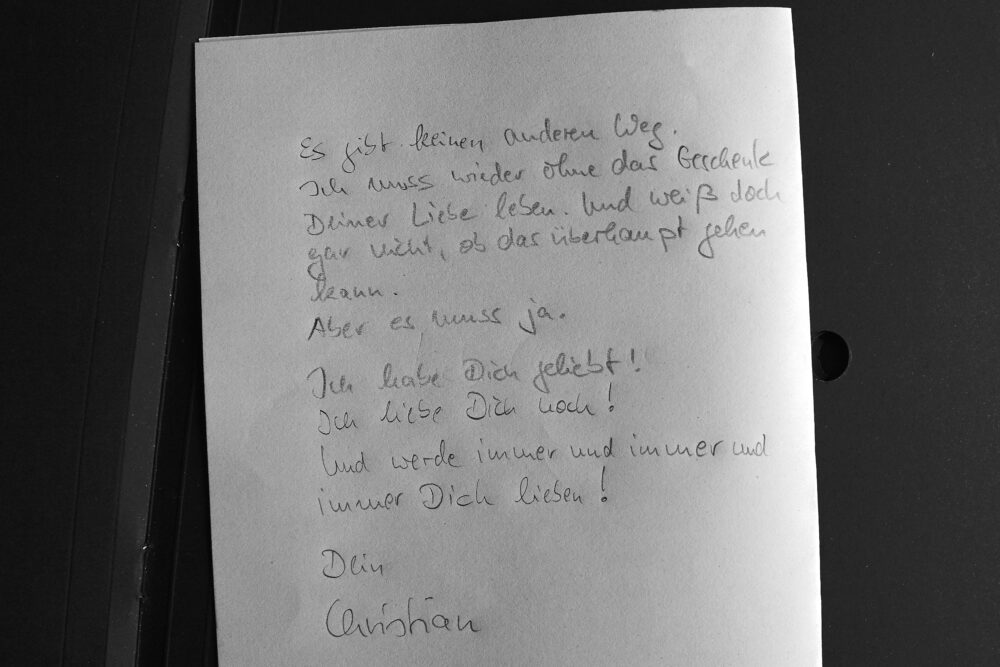 Es gibt keinen anderen Weg.
Ich muss wieder ohne das Geschenk
Deiner Liebe leben. Und weiß doch
gar nicht, ob das überhaupt gehen
kann.
Aber es muss ja.
Ich habe Dich geliebt!
Ich liebe Dich noch!
Und werde immer und immer und
immer Dich lieben!
Dein
Christian